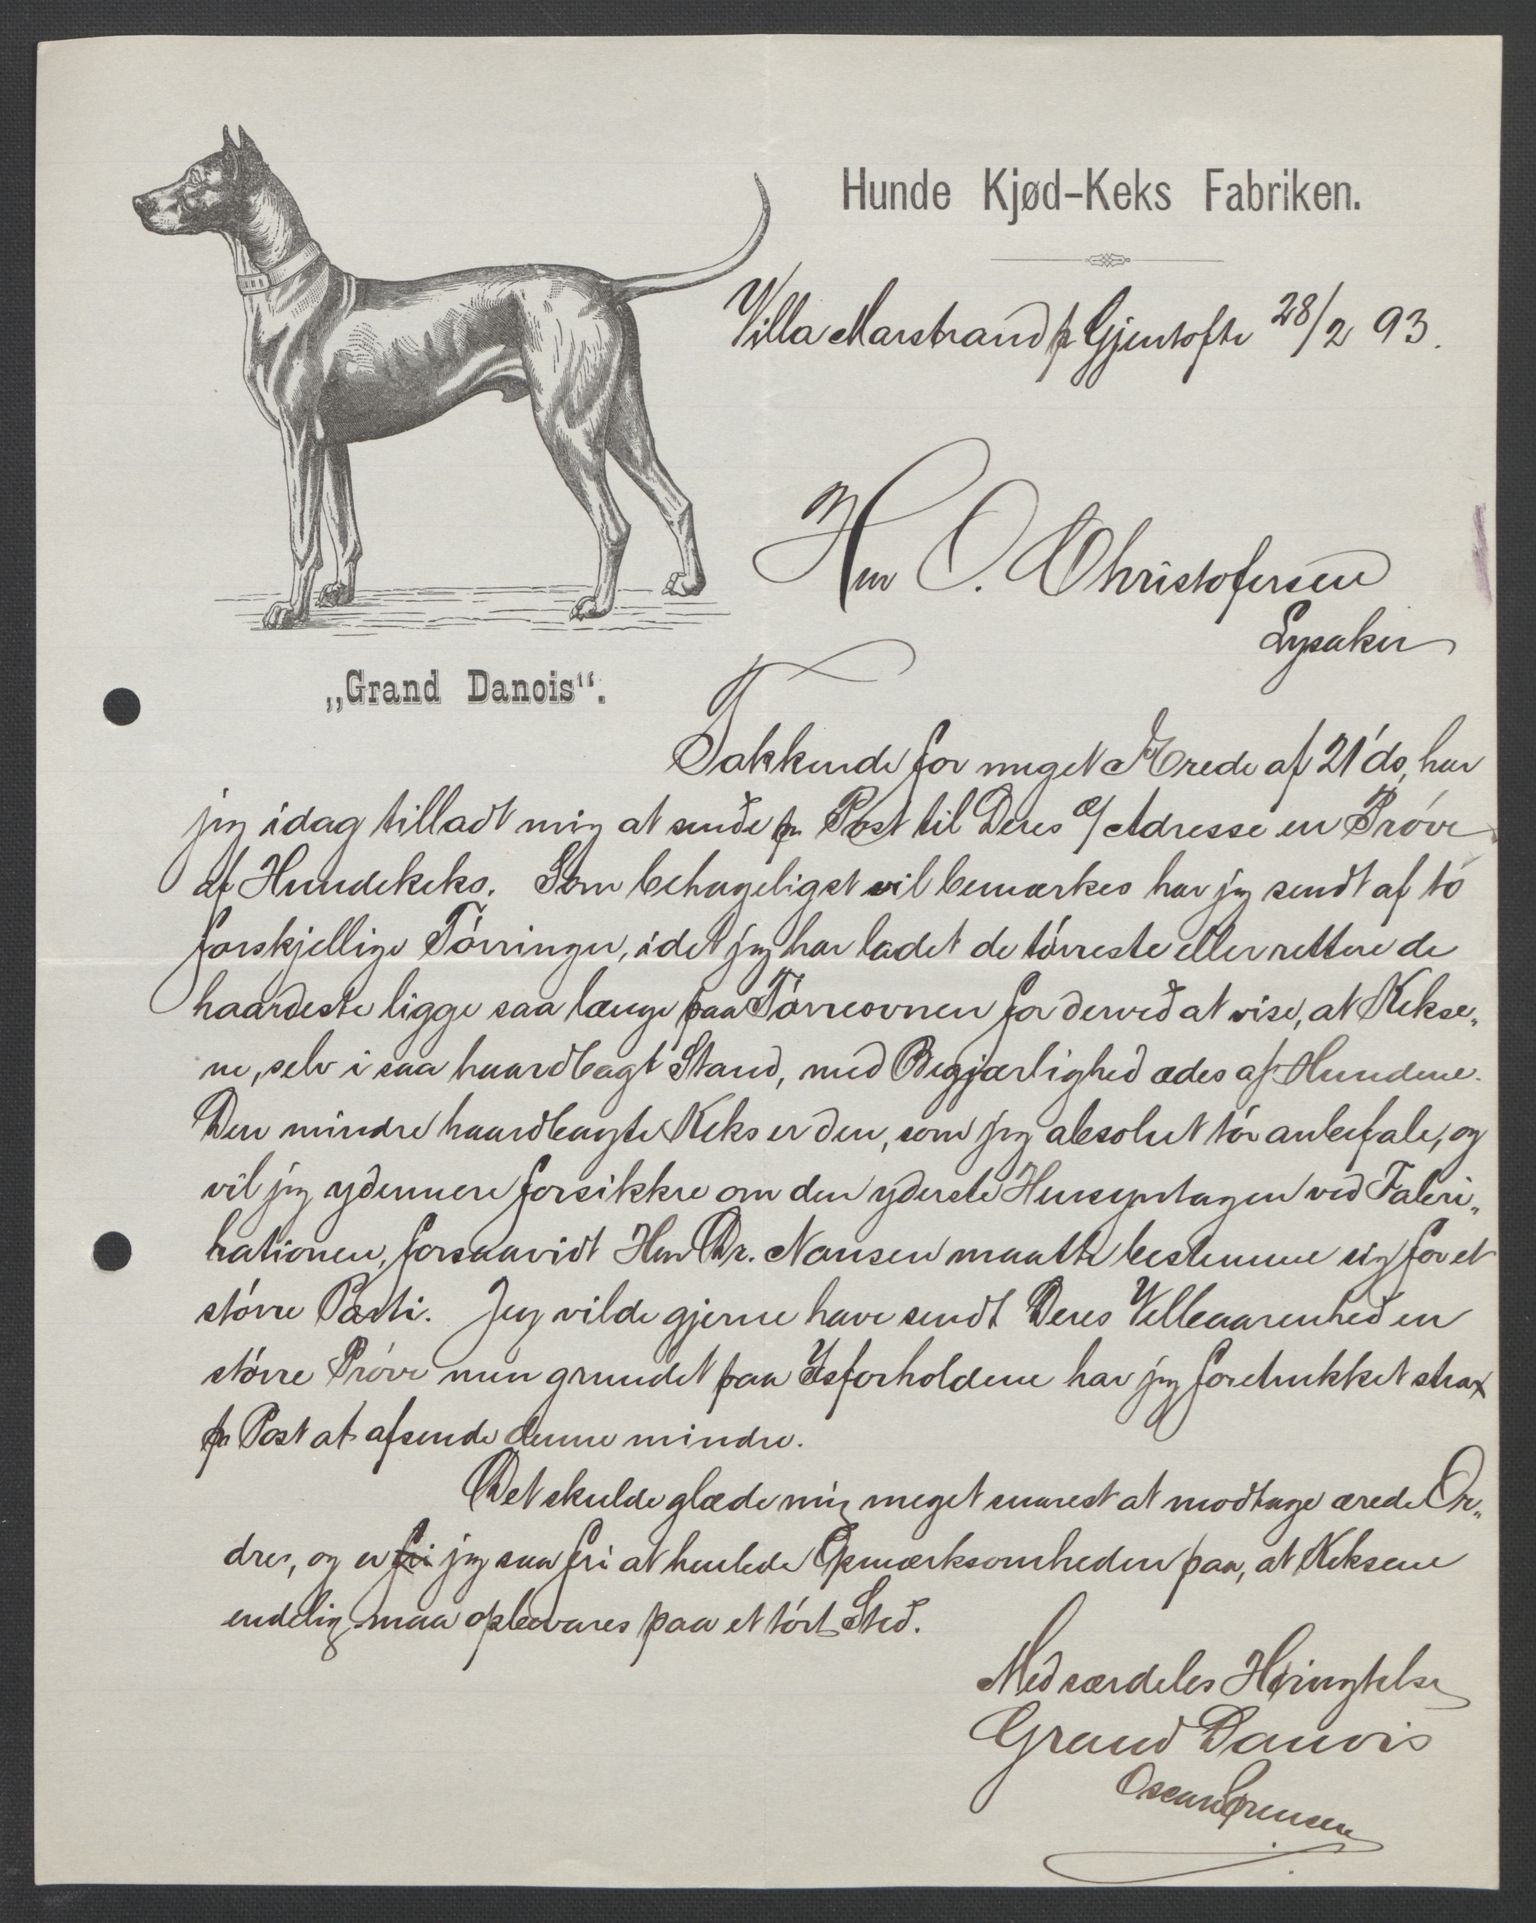 Hunde Kjød-Keks Fabriken.
Villa Marstrand pr Gjentofte 28/2 93.
Herr O. Christofersen
Lysaker
„Grand Danois“.
Takkende for meget Ærede af 21' ds, har
jeg idag tilladt mig at sende pr Post til Deres Adresse en Prøve
af Hundekeks. Som behageligst vil bemærkes har jeg sendt af to
forskjellige Tørringer, idet jeg har ladet de tørreste eller rettere de
haardeste ligge saa længe paa Tørreovnen for derved at vise, at Kekse„
ne, selv i saa haardbagt Stand, med Begjærlighed ædes af Hundene.
Den mindre haardbagte Keks er den, som jeg absolut tør anbefale, og
vil jeg ydermere forsikkre om den yderste Hensyntagen ved Fabri„
kationen, forsaavidt Herr Dr. Nansen maatte bestemme sig for et
større Parti. Jeg vilde gjerne have sendt Deres Velbaarenhed en
større Prøve men grundet paa Isforholdene har jeg foretrukket strax
pr Post at afsende denne mindre.
Det skulde glæde mig meget snarest at modtage ærede Or„
dres, og er fri jeg saa fri at henlede Opmærksomheden paa, at Keksene
endelig maa opbevares paa et tørt Sted.
Med særdeles Høiagtelse
Grand Danois
Oscar Sørensen